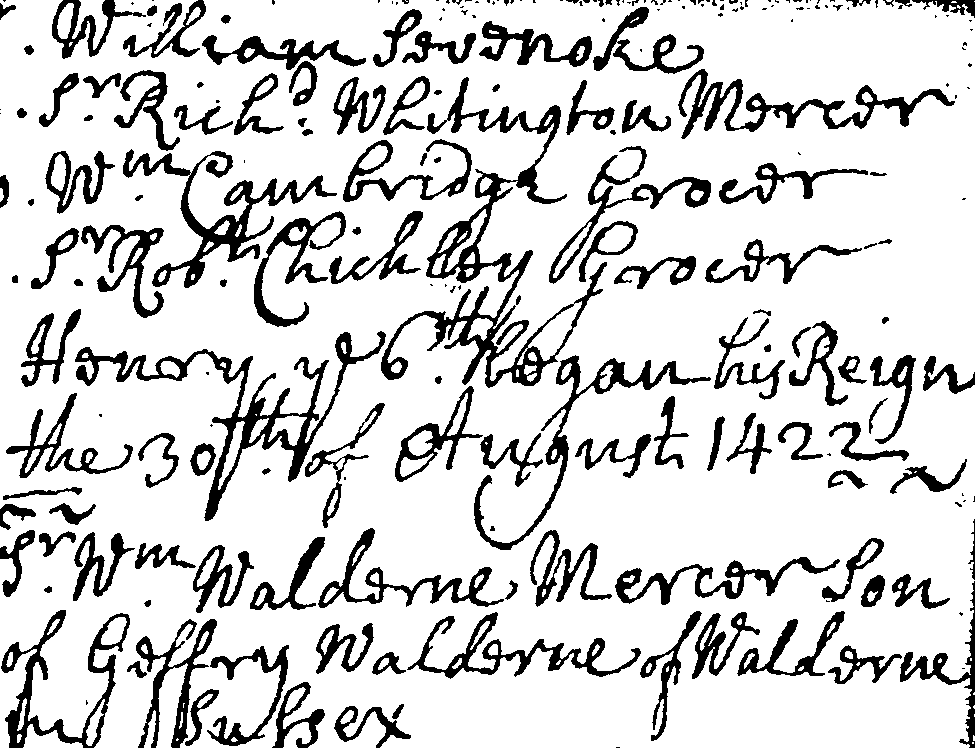 . William Sevenoke
. Sr. Richd: Whitington Mercer
. Wm. Cambridge Grocer
. Sr. Robt. Chichley Grocer
Henry ye 6th. began his Reign
the 30th. of August 1422
Sr. Wm. Walderne Mercer Son
of Geffry Walderne of Walderne
in Sussex